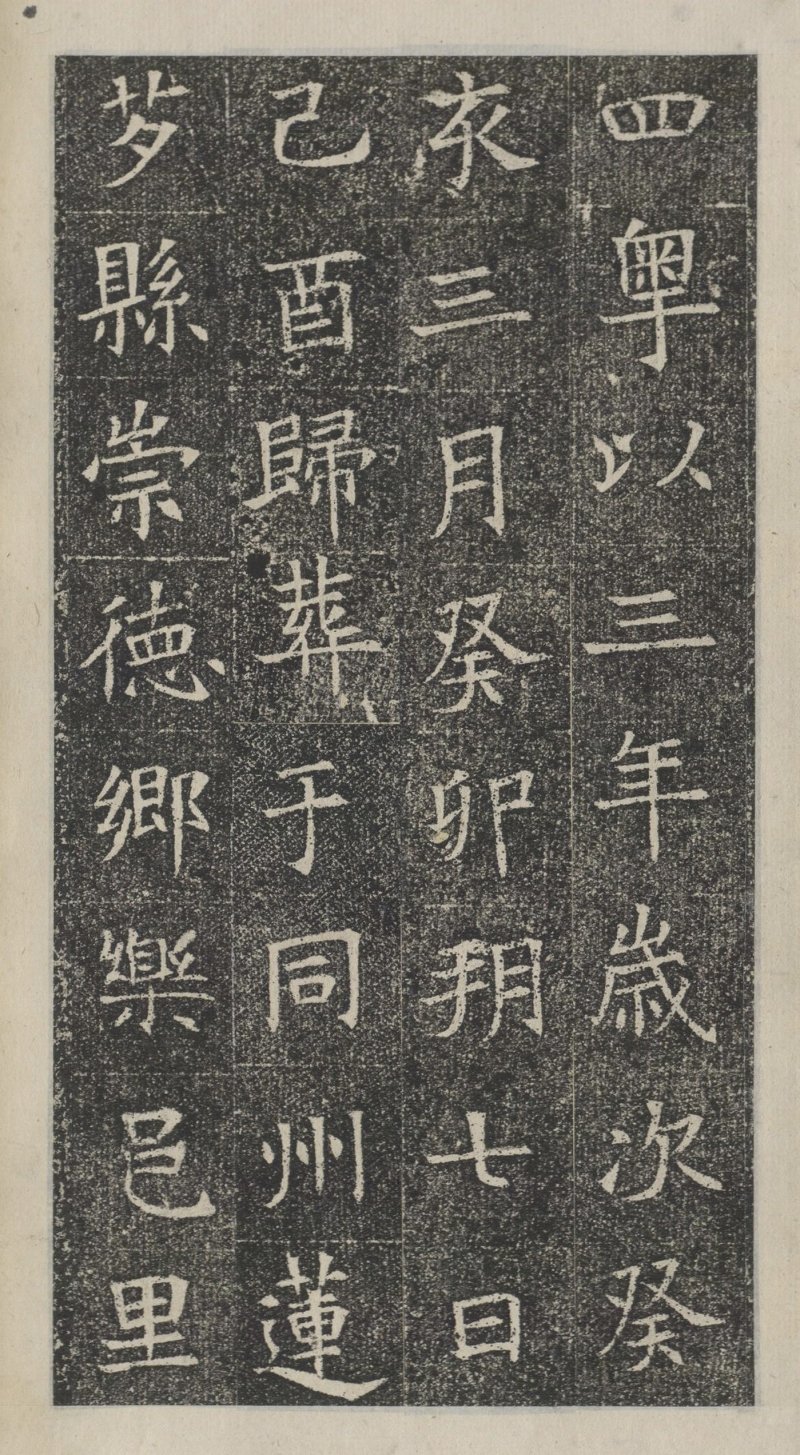 四粤以三年歳次癸
亥三月癸卯朔七日
己酉歸葬于同州蓮
芍縣崇徳鄉樂邑里